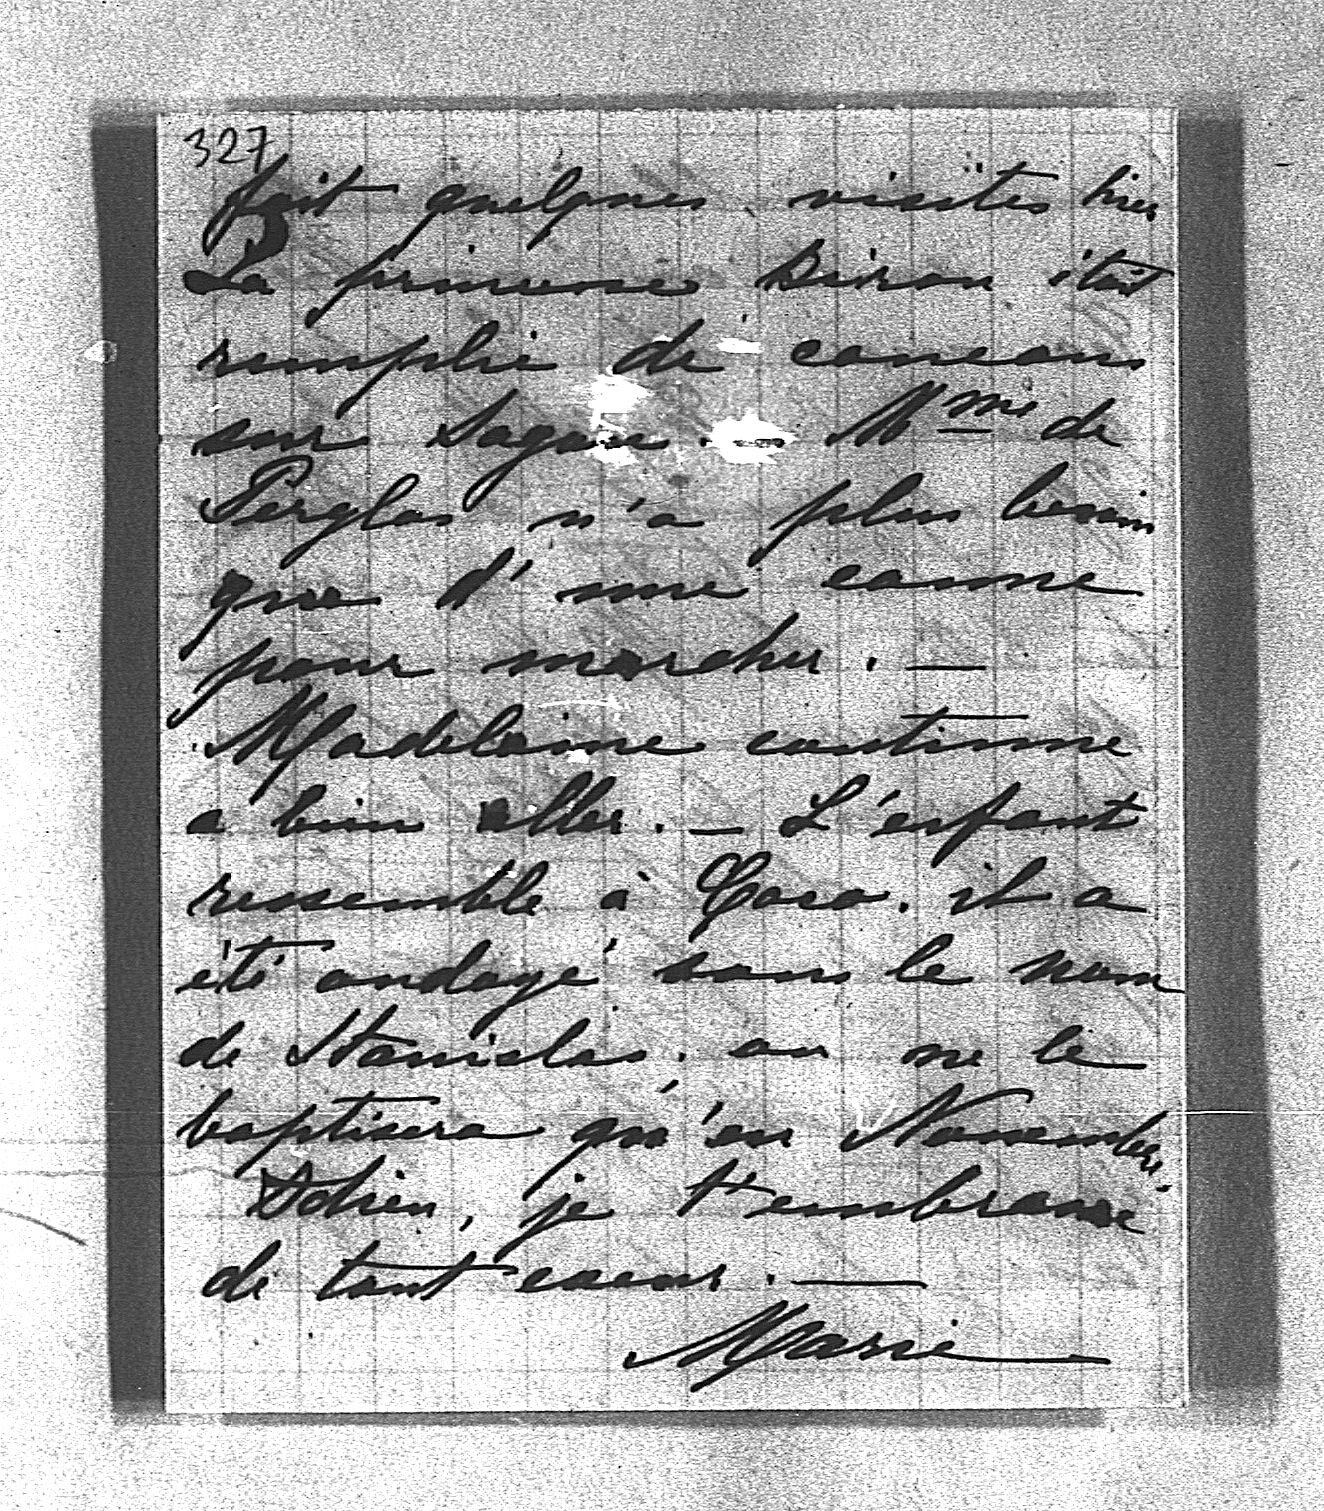 327
fait quelques visites hier
La princesse Biron était
remplie de cancans
sur Sagan. — Mme de
Perglas n'a plus besoin
que d'une canne
pour marcher. —
Madeleine continue
a bien aller. — L'enfant
ressemble à Coco. il a
été ondoyé sous le nom
de Stanislas. on ne le
baptisera qu'en Novembre.
Adieu, je t'embrasse
de tout coeur. —
Marie